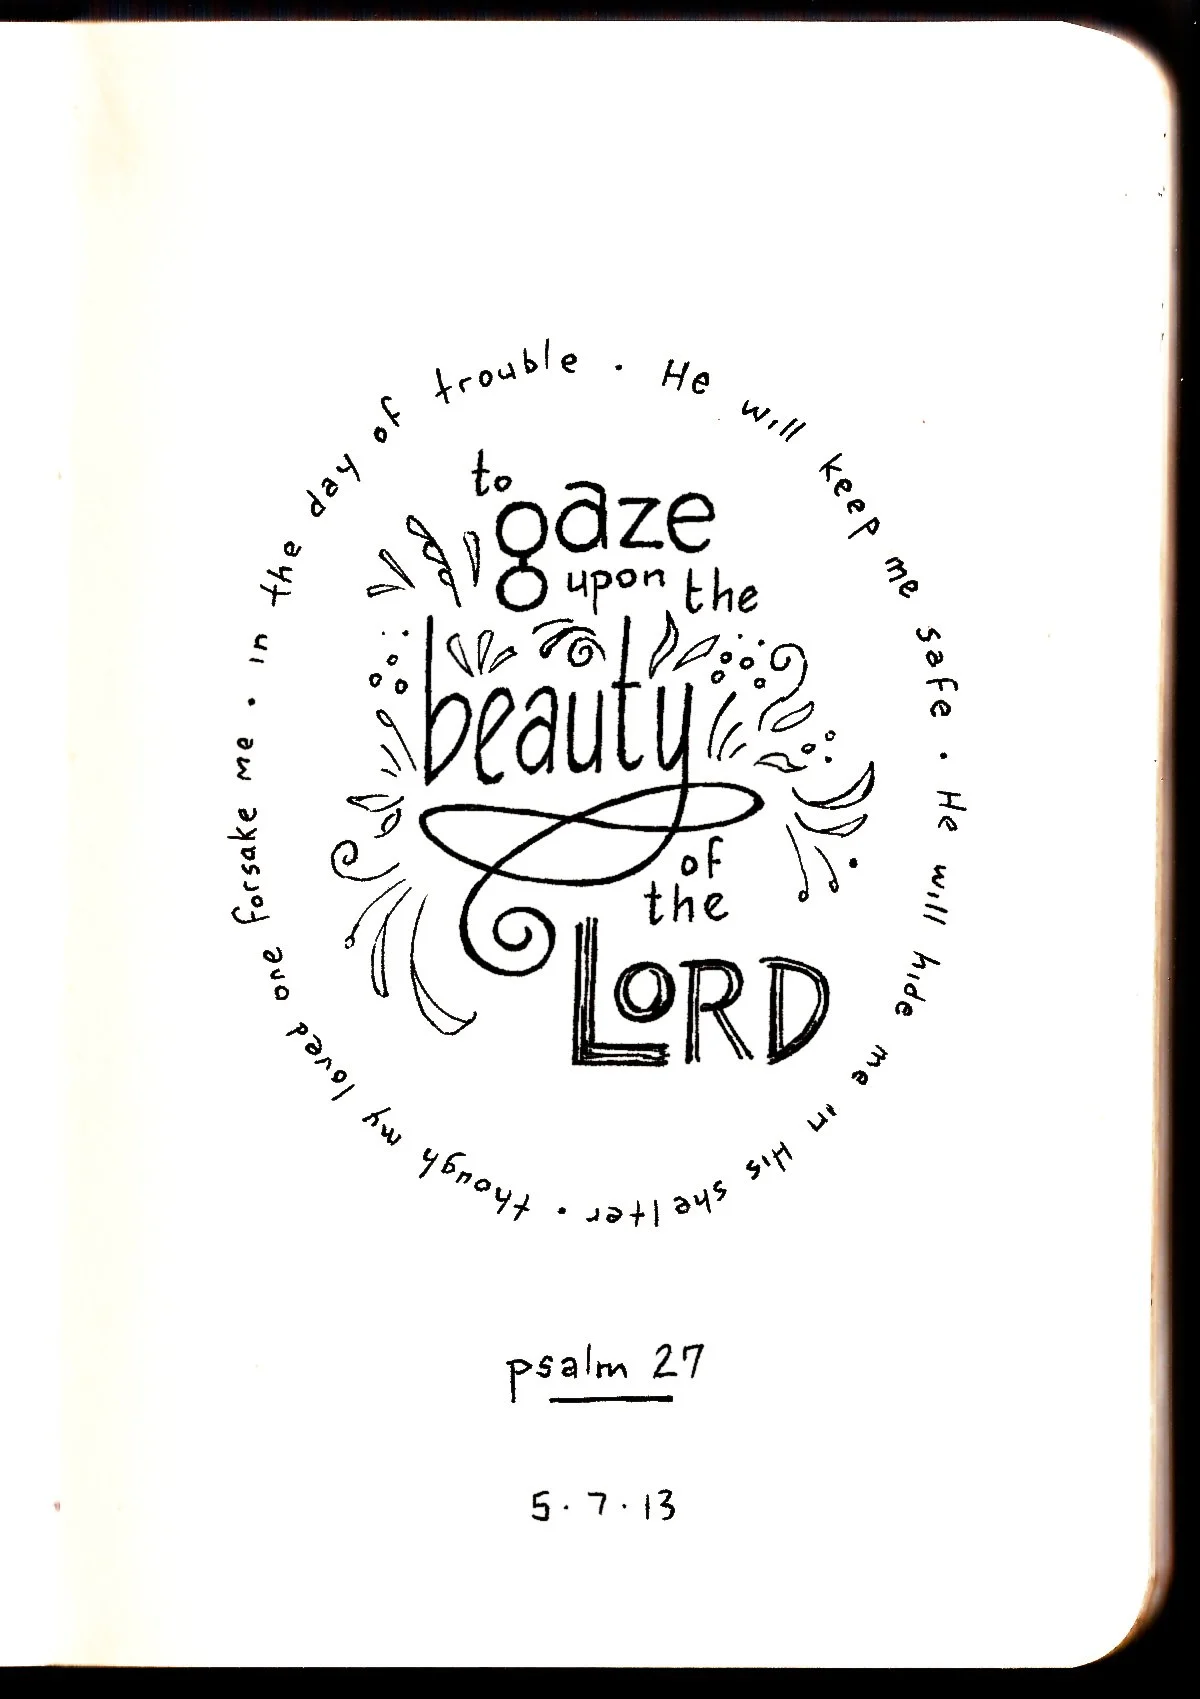 in the day of trouble · He will keep me safe · He will hide me in His shelter · though my loved one forsake me ·
to
gaze
upon the
beauty
of
the
LORD
psalm 27
5·7·13